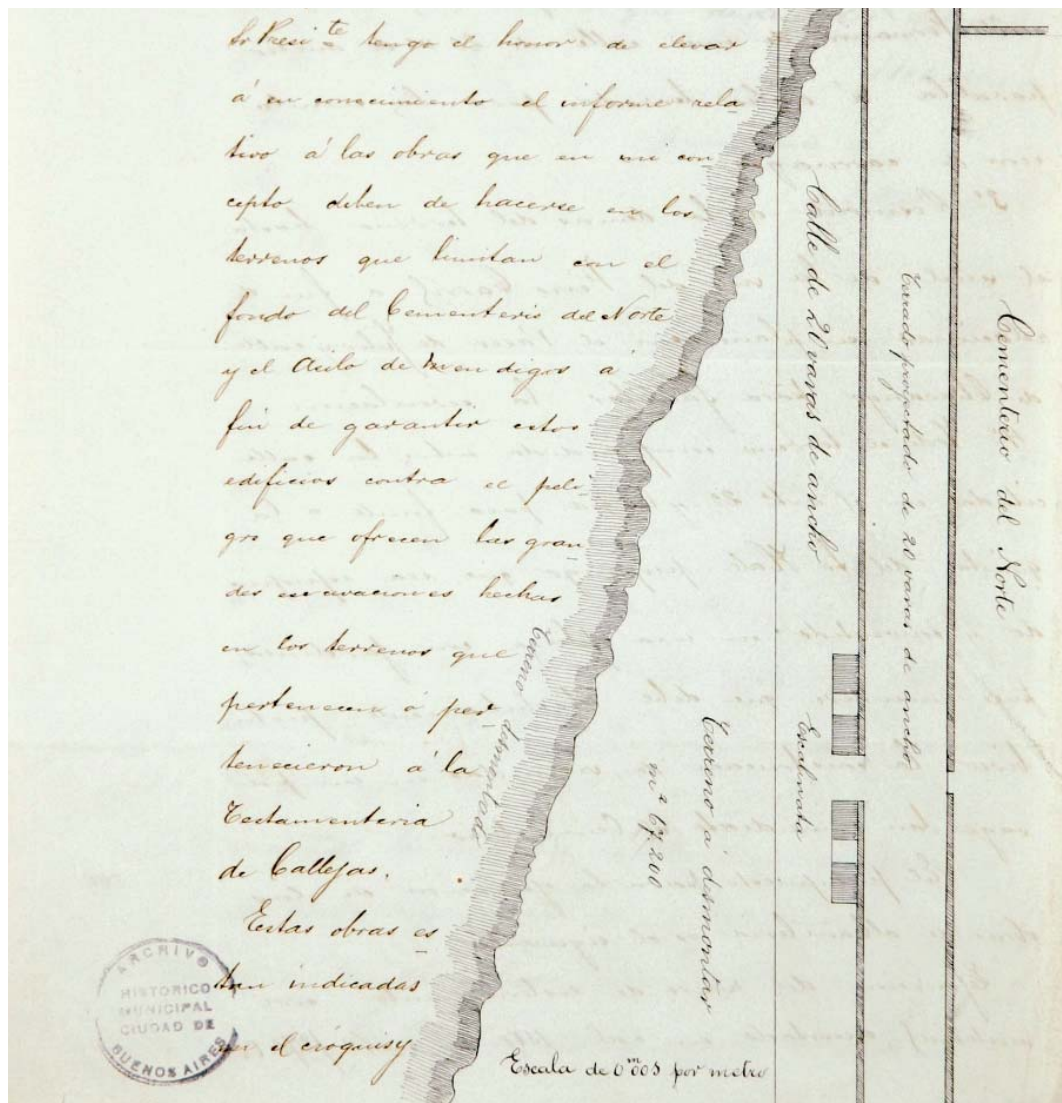 Sr. Presi.te tengo el honor de elevar
á su conocimiento el informe rela
tivo á las obras que en mi con
cepto deben de hacerse en los
terrenos que limitan con el
fondo del Cementerio del Norte
y el Asilo de Mendigos á
fin de garantir estos
edificios contra el peli
gro que ofrecen las gran
des escavaciones hechas
en los terrenos que
pertenecen ó per
tenecieron á la
Testamenteria
de Callejas.
Estas obras es
tan indicadas
en el cróquis y
Terreno desmontado
Terreno á desmontar
m.s 67.200
Escalinata
Calle de 20 varas de ancho
Cerrado proyectado de 20 varas de ancho
Cementerio del Norte
Escala de 0m005 por metro
ARCHIVO
HISTORICO
MUNICIPAL
CIUDAD DE
BUENOS AIRES